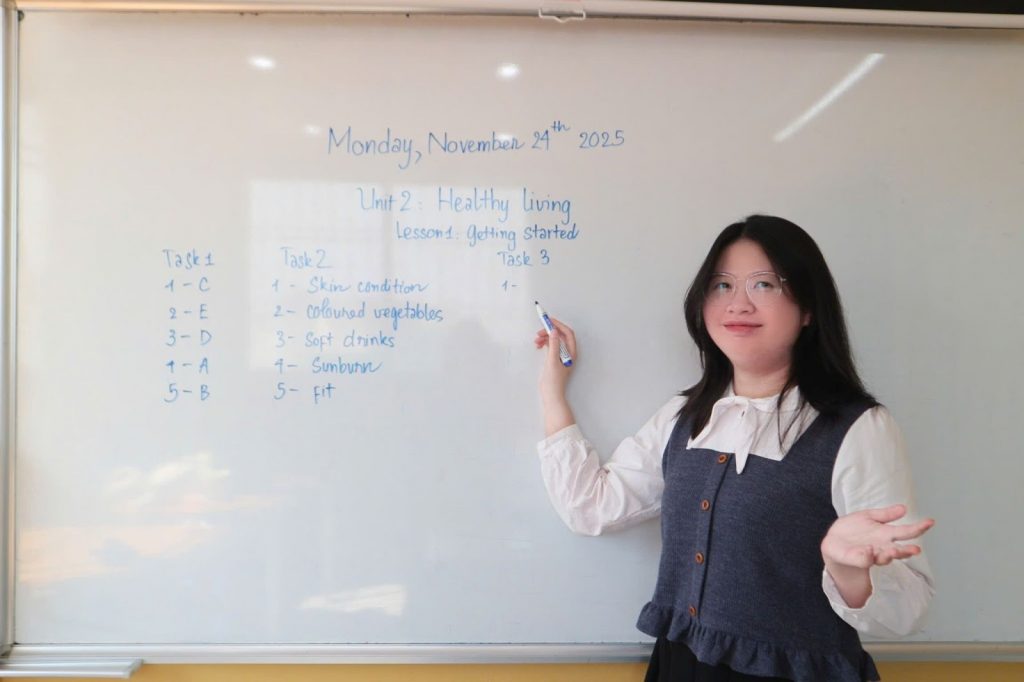 Monday, November 24th 2025
Unit 2: Healthy living
Lesson 1: Getting started
Task 1
1 - C
2 - E
3 - D
4 - A
5 - B
Task 2
1 - Skin condition
2 - coloured vegetables
3 - Soft drinks
4 - Sunburn
5 - fit
Task 3
1 -